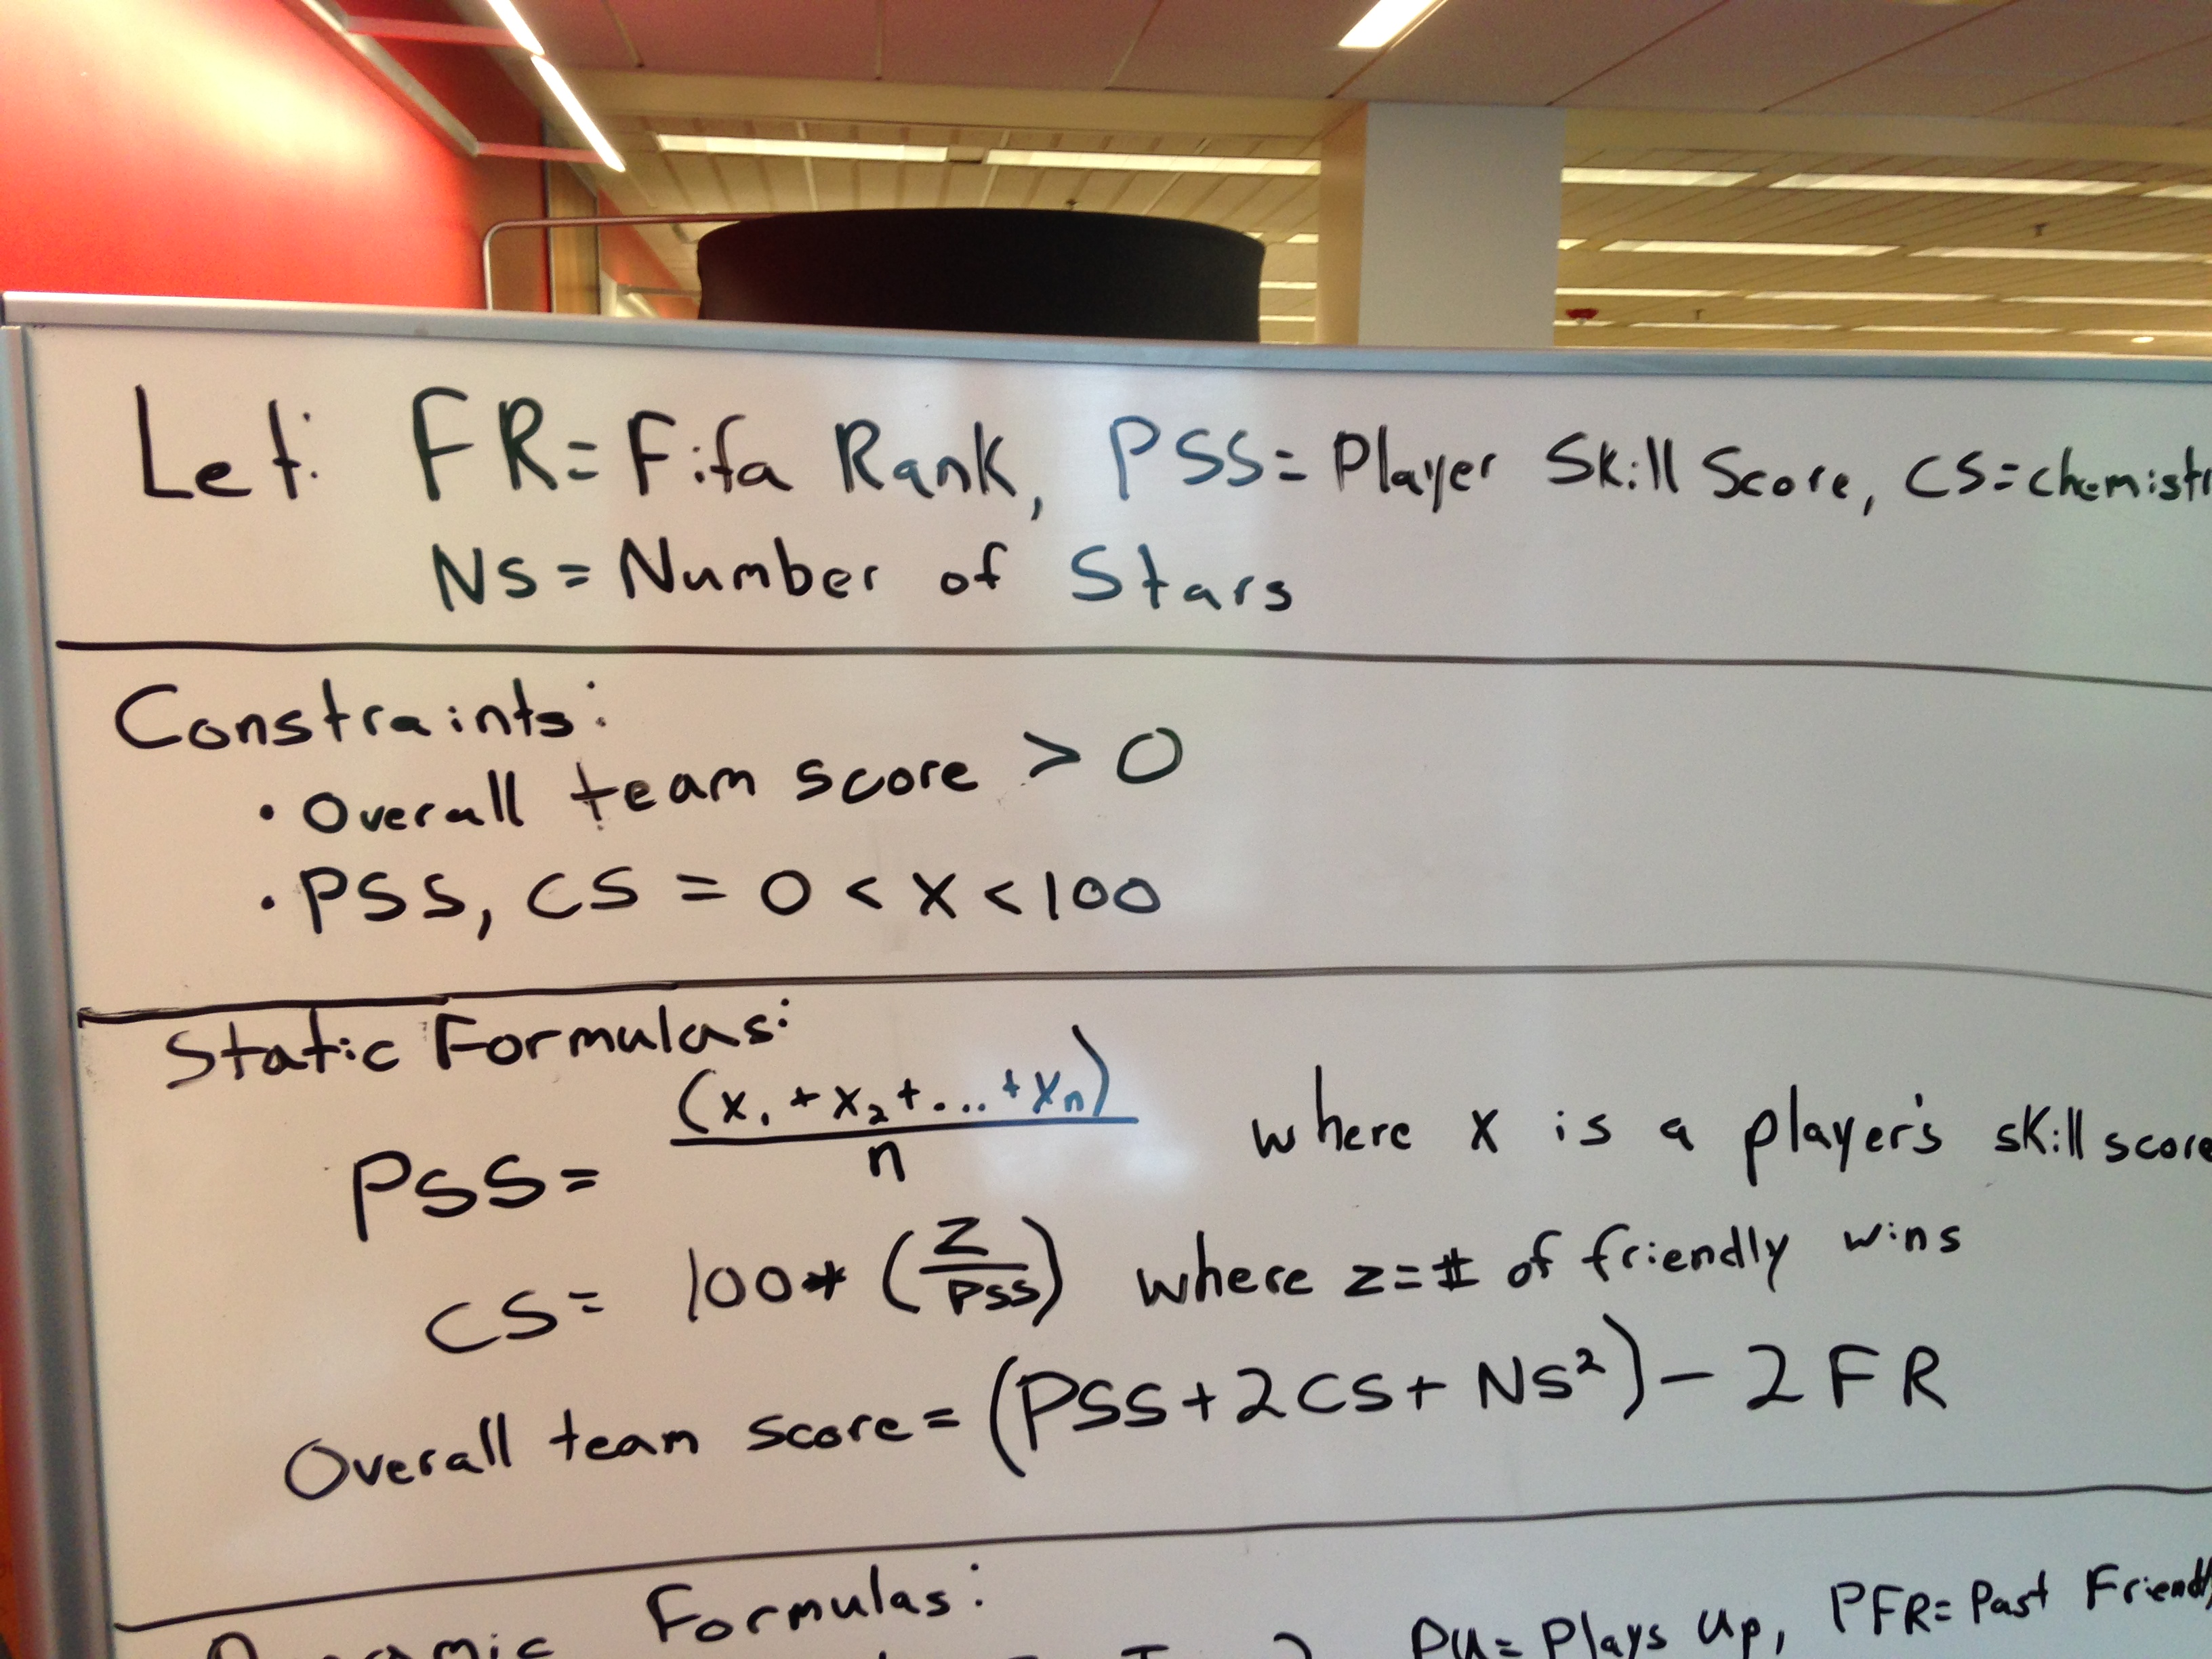 Let: FR= Fifa Rank, PSS= Player Skill Score, CS=chemistr
NS = Number of Stars
Constraints:
• Overall team score > 0
• PSS, CS = 0 < x < 100
Static Formulas:
PSS= (x₁ + x₂ + ... + xₙ) / n where x is a player's skill score
CS= 100* (z/PSS) where z=# of friendly wins
Overall team score = (PSS+2CS+ NS²) - 2FR
Formulas:
PU= Plays Up, PFR= Past Friendl